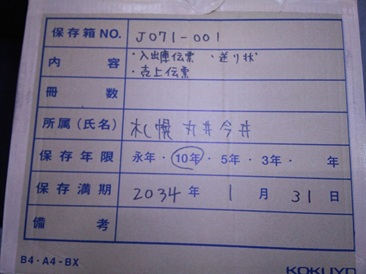 保存箱NO. J071-001
内容 ・入出庫伝票 ・送り状
・売上伝票
冊数
所属(氏名) 札幌 丸井今井
保存年限 永年・10年・5年・3年・ 年
保存満期 2034年 1月 31日
備考
B4・A4-BX KOKUYO